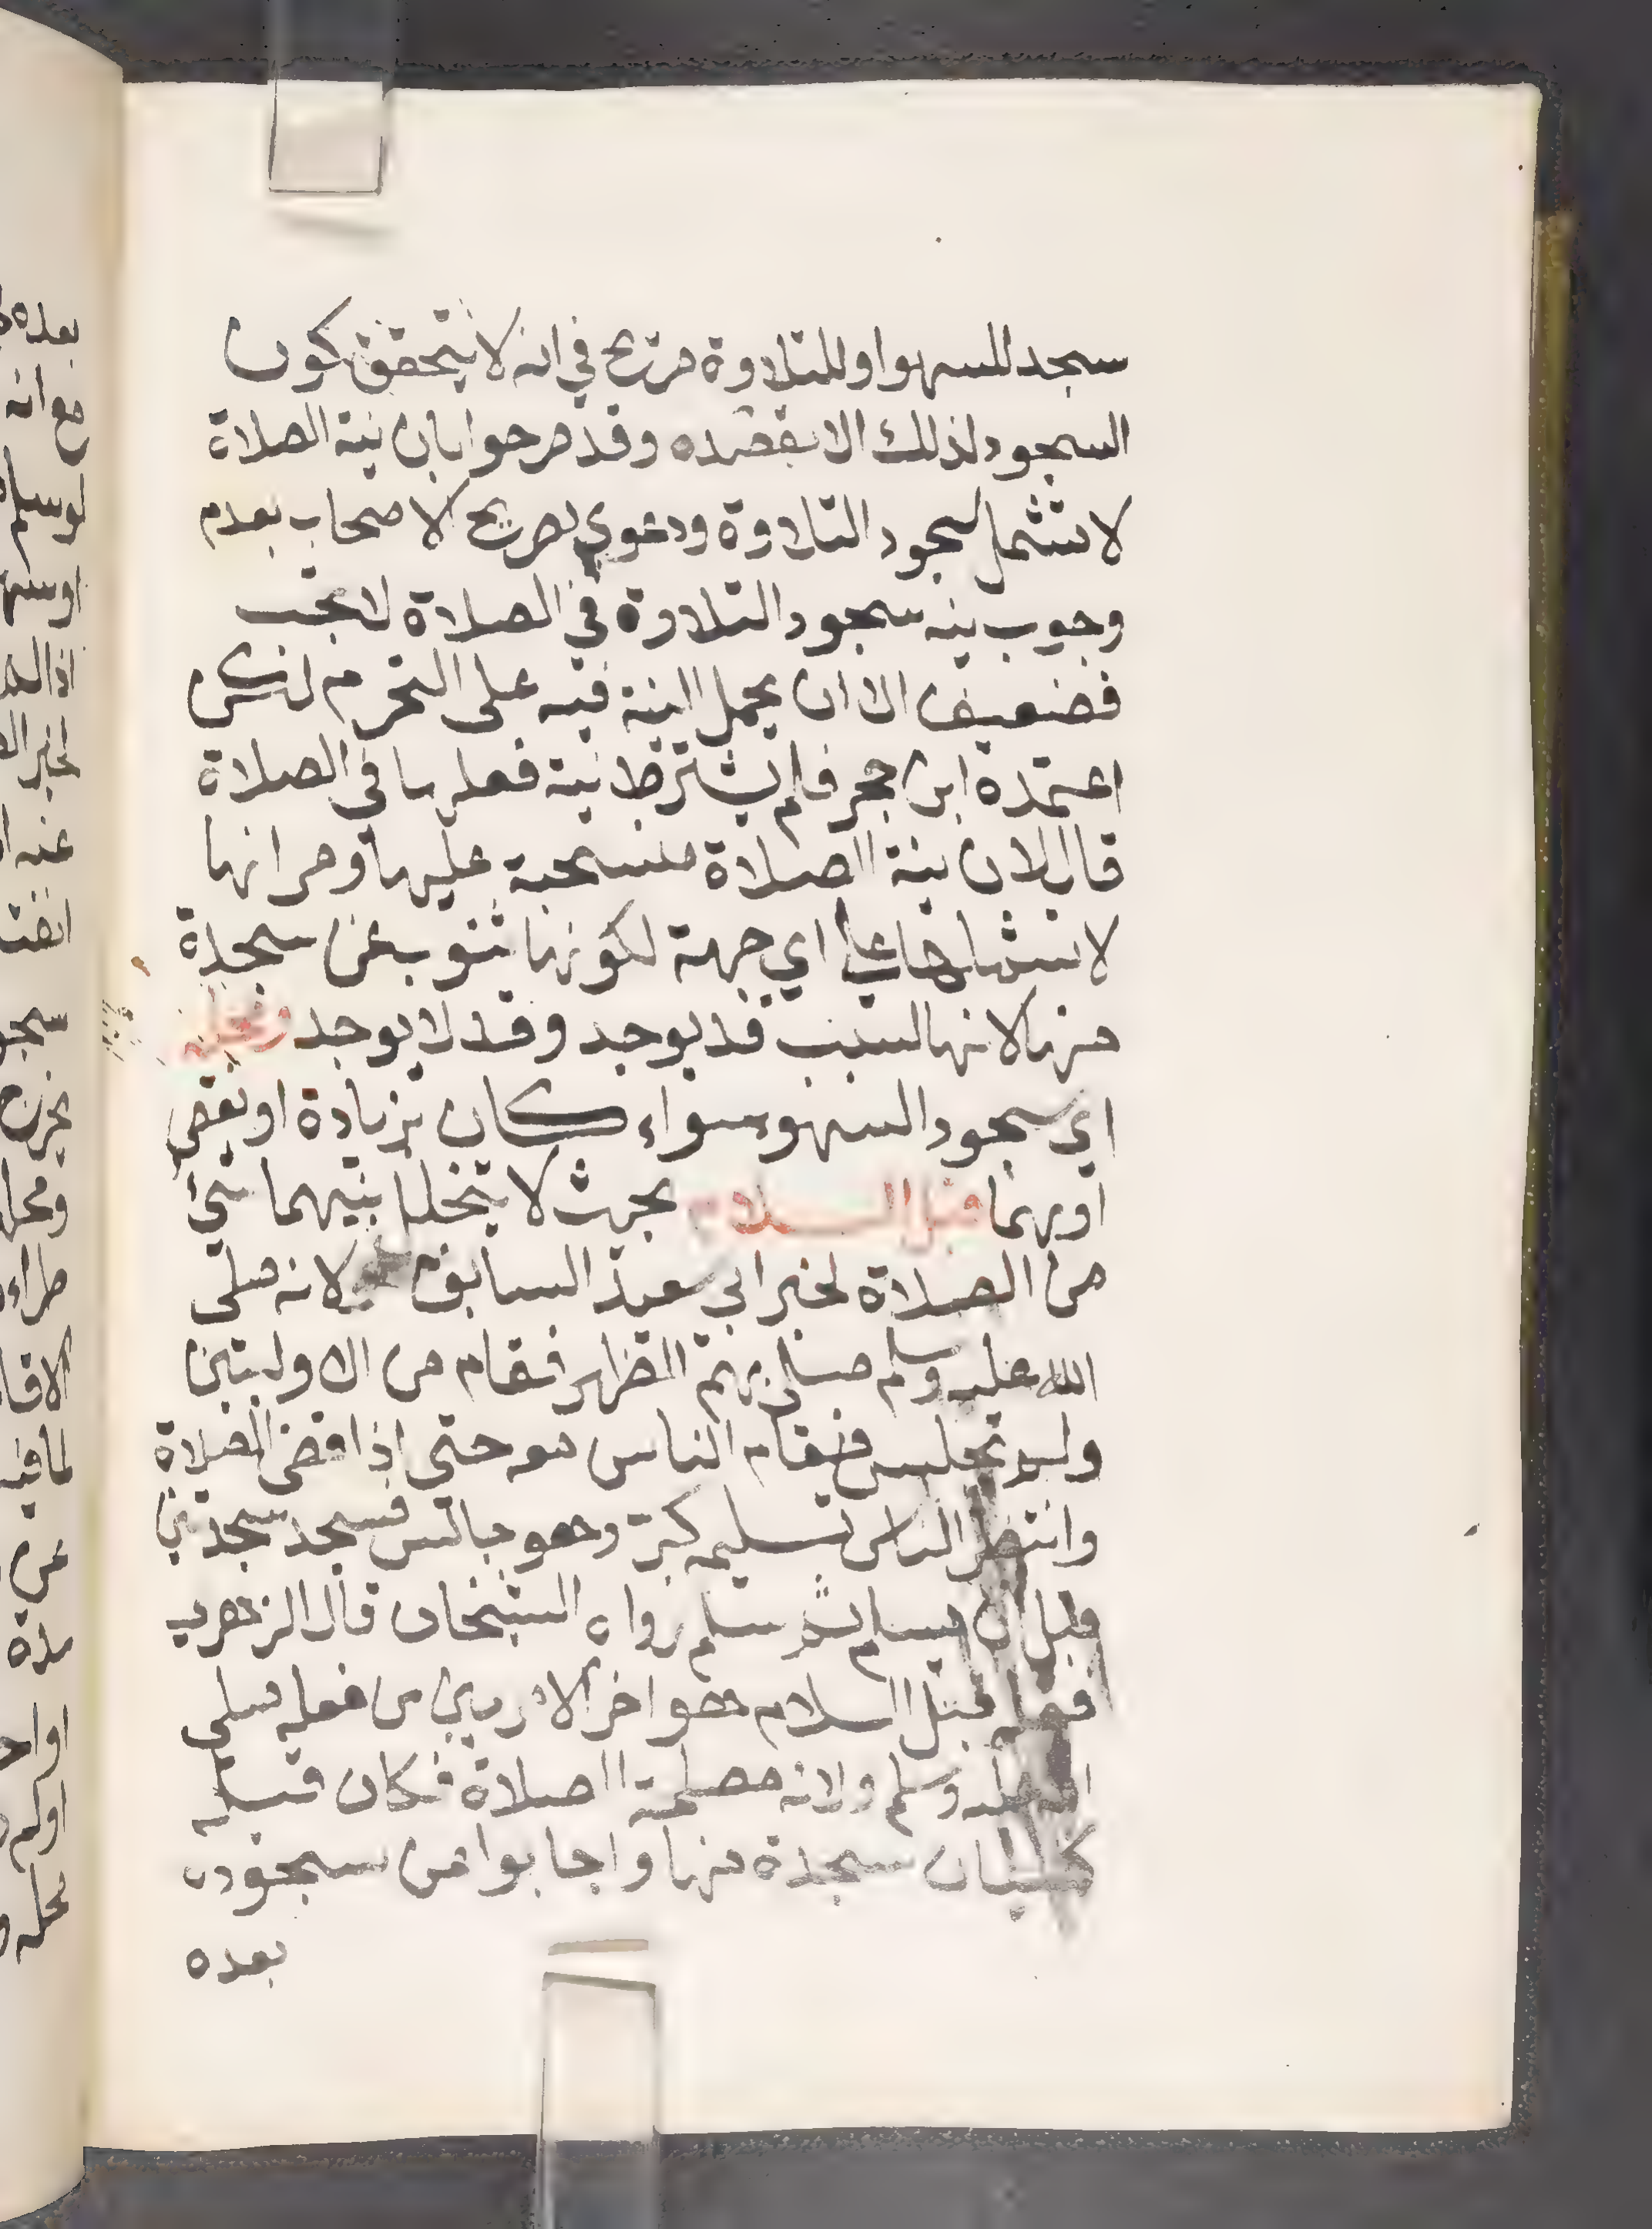 سجد للسهو او للتلاوة صريح في انه لا يتحقق كون
السجود لذلك الا بقصده وقد صرحوا بان نية الصلاة
لا تشمل سجود التلاوة ودعوي تصريح الاصحاب بعدم
وجوب نية سجود التلاوة في الصلاة لا تجب
فضعيف الا ان يحمل النية فيه على التحرم لكن
اعتمده ابن حجر فلم يشترط نية فعلها في الصلاة
قال لان نية الصلاة منسحبة عليها ومر انها
لا تشملها اي جهة لكونها تنوب عن سجدة
منها لانها لسبب قد يوجد وقد لا يوجد ومحله
اي سجود السهو سواء كان بزيادة او نقص
او بهما قبل السلام بحيث لا يتخلل بينهما شي
من الصلاة لخبر ابي سعيد السابق لانه صلى
الله عليه وسلم صلى بهم الظهر فقام من الاوليتين
ولم يجلس فقام الناس معه حتي اذا قضى الصلاة
وانتظر الناس تسليمه كبر وهو جالس فسجد سجدتين
قبل ان يسلم ثم سلم رواه الشيخان قال الزهري
فعله قبل السلام هو اخر الامرين من فعله صلى
الله عليه وسلم ولانه مصلحة الصلاة فكان قبله
كنسيان سجدة منها واجابوا عن سجوده
بعده